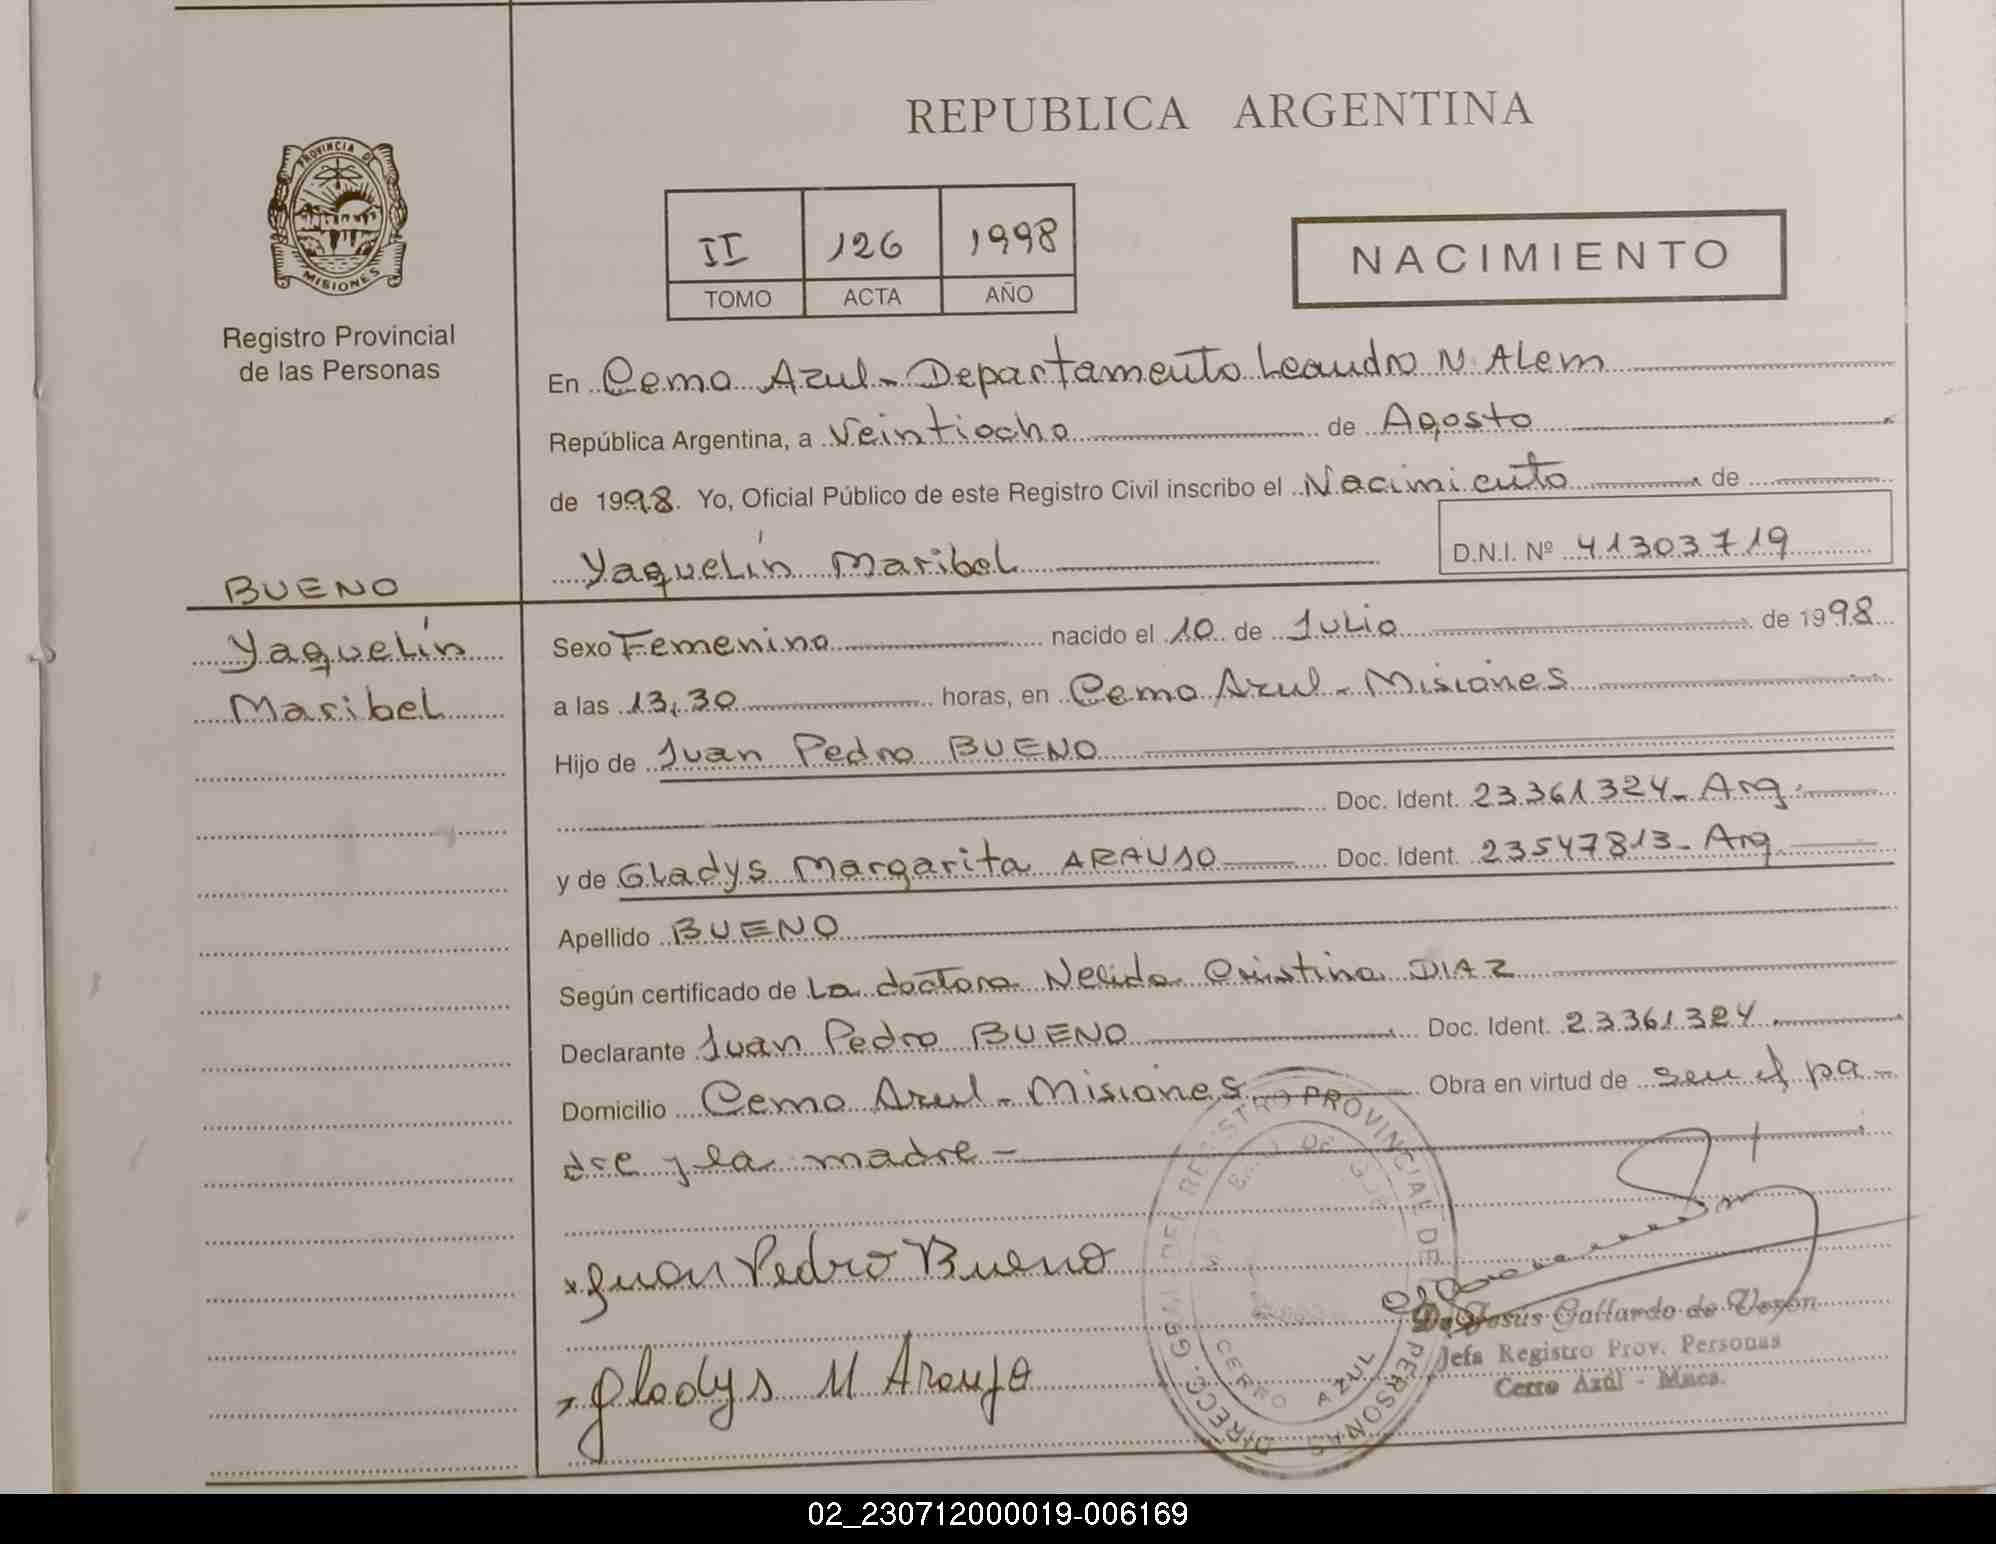 REPUBLICA ARGENTINA
PROVINCIA DE
MISIONES
Registro Provincial
de las Personas
II 126 1998
TOMO ACTA AÑO
NACIMIENTO
En Cerro Azul - Departamento Leandro N. Alem
República Argentina, a Veintiocho de Agosto
de 1998. Yo, Oficial Público de este Registro Civil inscribo el Nacimiento de
Yaquelín Maribel D.N.I. Nº 41303719
BUENO
Yaquelín
Maribel
Sexo Femenino nacido el 10 de Julio de 1998
a las 13,30 horas, en Cerro Azul - Misiones
Hijo de Juan Pedro BUENO
Doc. Ident. 23361324 - Arg.
y de Gladys Margarita ARAUJO Doc. Ident. 23547813 - Arg
Apellido BUENO
Según certificado de La doctora Nelida Cristina DIAZ
Declarante Juan Pedro BUENO Doc. Ident. 23361324
Domicilio Cerro Azul - Misiones Obra en virtud de ser el pa-
dre y la madre -
Juan Pedro Bueno
Gladys M Araujo
DIRECC. GRAL. DEL REGISTRO PROVINCIAL DE PERSONAS
CERRO AZUL
De Jesús Gallardo de Verón
Jefa Registro Prov. Personas
Cerro Azúl - Mnes.
02_230712000019-006169